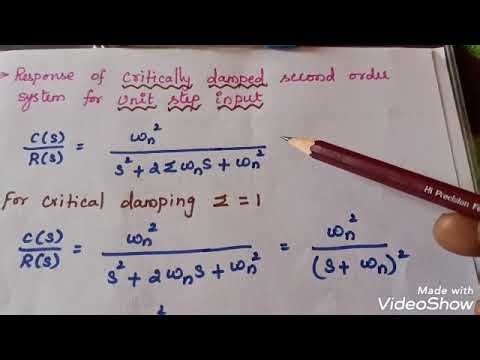 → Response of critically damped second order
system for unit step input
C(s)/R(s) = ωn²/(s² + 2zωns + ωn²)
For critical damping z = 1
C(s)/R(s) = ωn²/(s² + 2ωns + ωn²) = ωn²/(s + ωn)²
2
Hi Precision
Made with
VideoShow